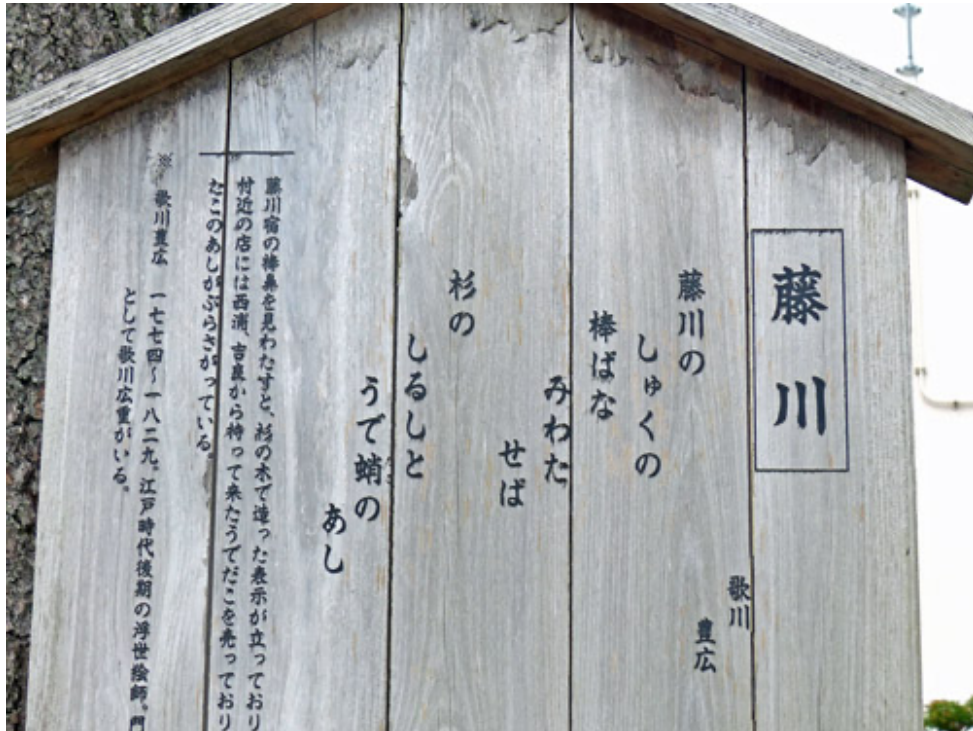 藤川
歌川
豊広
藤川の
しゅくの
棒ばな
みわた
せば
杉の
しるしと
うで蛸の
あし
藤川宿の棒鼻を見わたすと、杉の木で造った表示が立っており
付近の店には西浦、吉良から持って来たうでだこを売っており
たこのあしがぶらさがっている。
※ 歌川豊広 一七七四〜一八二九。江戸時代後期の浮世絵師。門
として歌川広重がいる。